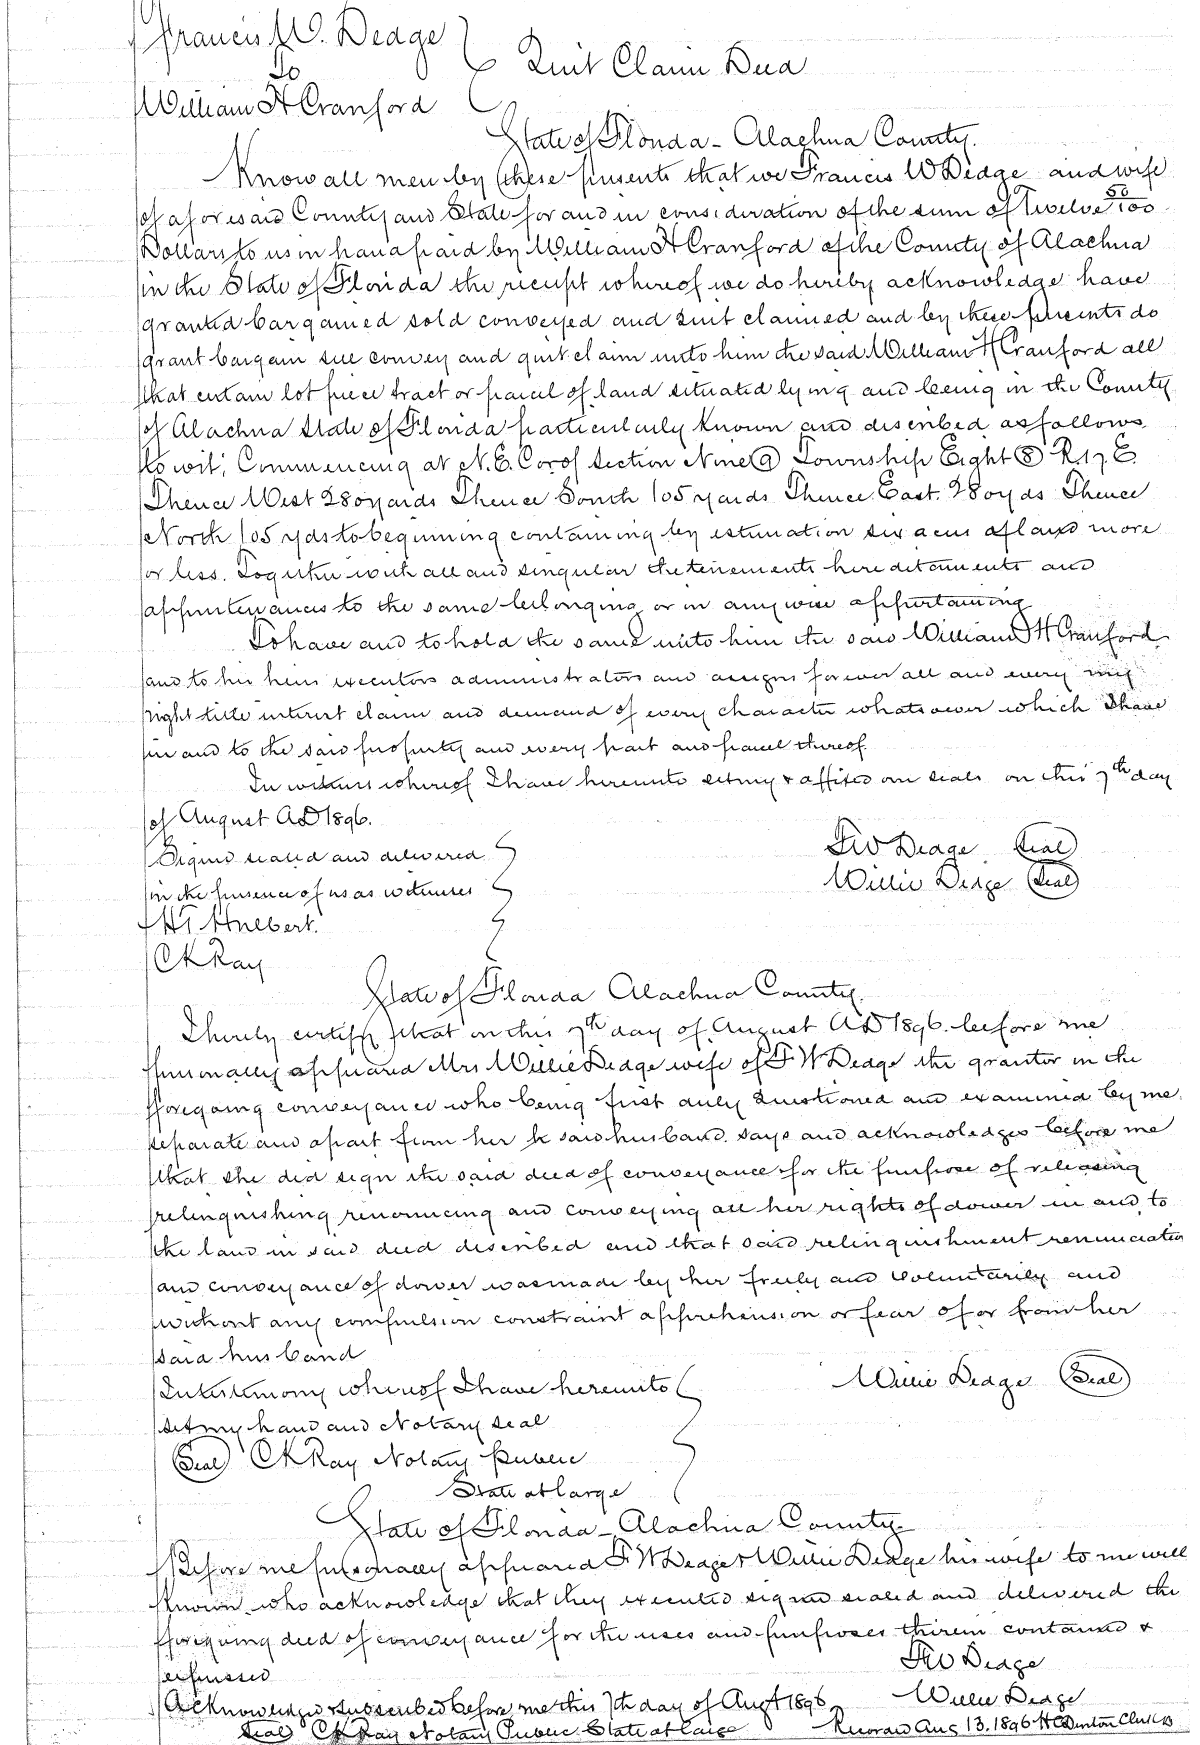 Francis W. Dedge
To
William H Cranford
Quit Claim Deed
State of Florida - Alachua County.
Know all men by these presents that we Francis W Dedge and wife
of aforesaid County and State for and in consideration of the sum of Twelve 50/100
Dollars to us in hand paid by William H Cranford of the County of Alachua
in the State of Florida the receipt whereof we do hereby acknowledge have
granted bargained sold conveyed and quit claimed and by these presents do
grant bargain sell convey and quit claim unto him the said William H Cranford all
that certain lot piece tract or parcel of land situated lying and being in the County
of Alachua State of Florida particularly known and described as follows
to wit; Commencing at N.E. Cor of Section Nine (9) Township Eight (8) R.17 E.
Thence West 280 yards Thence South 105 yards Thence East. 280 yds Thence
North 105 yds to beginning containing by estimation six acres of land more
or less. Together with all and singular the tenements hereditaments and
appurtenances to the same belonging or in anywise appertaining
To have and to hold the same unto him the said William H Cranford
and to his heirs executors administrators and assigns forever all and every my
right title interest claim and demand of every character whatsoever which I have
in and to the said property and every part and parcel thereof
In witness whereof I have hereunto set my & affixed our seals on this 7th day
of August AD 1896.
Signed sealed and delivered
in the presence of us as witnesses
H T Hulbert.
C K Ray
F W Dedge Seal
Willie Dedge Seal
State of Florida Alachua County.
I hereby certify that on this 7th day of August AD 1896. before me
personally appeared Mrs Willie Dedge wife of F W Dedge the grantor in the
foregoing conveyance who being first duly questioned and examined by me
separate and apart from her said husband. says and acknowledges before me
that she did sign the said deed of conveyance for the purpose of releasing
relinquishing renouncing and conveying all her rights of dower in and to
the land in said deed described and that said relinquishment renunciation
and conveyance of dower was made by her freely and voluntarily and
without any compulsion constraint apprehension or fear of or from her
said husband
Willie Dedge Seal
In testimony whereof I have hereunto
set my hand and Notary seal
Seal C K Ray Notary Public
State at large
State of Florida - Alachua County
Before me personally appeared F W Dedge & Willie Dedge his wife to me well
known who acknowledge that they executed signed sealed and delivered the
foregoing deed of conveyance for the uses and purposes therein contained &
expressed
F W Dedge
Willie Dedge
Acknowledged & subscribed before me this 7th day of Augt 1896
Seal C K Ray Notary Public State at large
Recorded Aug 13. 1896 H C Denton Clerk